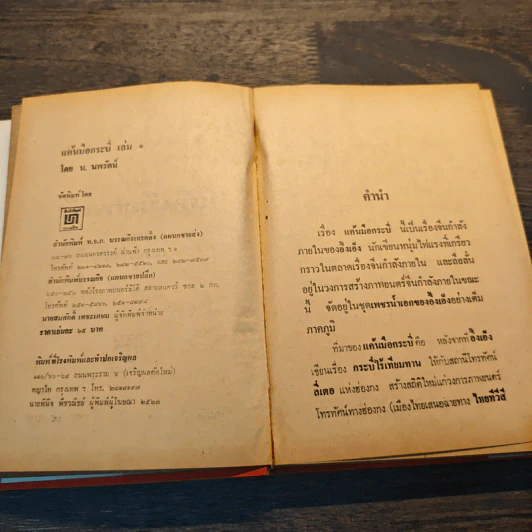 แค้นมือกระบี่ เล่ม ๑
โดย น. นพรัตน์
จัดพิมพ์โดย
สำนักพิมพ์ บรรณกิจเทรดดิ้ง (แผนกขายส่ง)
โทรศัพท์
สำนักพิมพ์บรรณกิจ (แผนกขายปลีก)
โทรศัพท์
ผู้จัดพิมพ์จำหน่าย
ราคาเล่มละ ๖๕ บาท
พิมพ์ที่โรงพิมพ์และทำปกเจริญผล
ถนนพระราม ๖ (เจริญผลตัดใหม่)
พญาไท กรุงเทพ ฯ โทร.
ผู้พิมพ์ผู้โฆษณา ๒๕๒๓
คำนำ
เรื่อง แค้นมือกระบี่ นี้เป็นเรื่องจีนกำลัง
ภายในของอึ้งเอ็ง นักเขียนหนุ่มไฟแรงที่เกรียว
กราวในตลาดเรื่องจีนกำลังภายใน และลือลั่น
อยู่ในวงการสร้างภาพยนตร์จีนกำลังภายในขณะ
นี้ จัดอยู่ในชุดเพชรน้ำเอกของอึ้งเอ็งอย่างเต็ม
ภาคภูมิ
ที่มาของแค้นมือกระบี่คือ หลังจากที่ อึ้งเอ็ง
เขียนเรื่อง กระบี่ไร้เทียมทาน ให้กับสถานีโทรทัศน์
ลี่เตอ แห่งฮ่องกง สร้างสถิติใหม่แก่วงการภาพยนตร์
โทรทัศน์ทางฮ่องกง (เมืองไทยเสนอฉายทาง ไทยทีวีสี